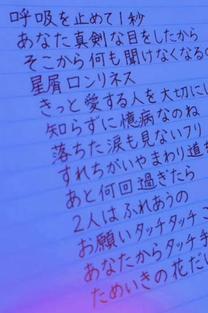 呼吸を止めて1秒
あなた真剣な目をしたから
そこから何も聞けなくなるの
星屑ロンリネス
きっと愛する人を大切に
知らずに憶病なのね
落ちた涙も見ないフリ
すれちがいやまわり道を
あと何回過ぎたら
2人はふれあうの
お願いタッチタッチ
あなたからタッチ
ためいきの花だ